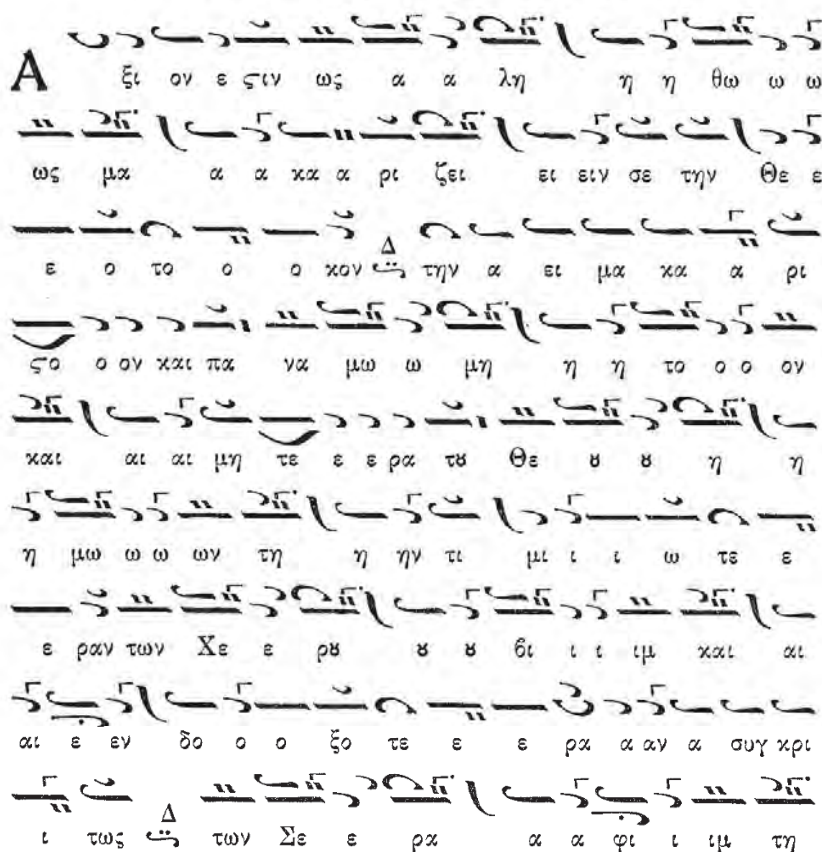 Α ξι ον ε ςιν ως α α λη η η θω ω ω
ως μα α α κα α ρι ζει ει ειν σε την Θε ε
ε ο το ο ο κον Δ την α ει μα κα α ρι
ςο ο ον και πα να μω ω μη η η το ο ο ον
και αι αι μη τε ε ε ρα τȣ Θε ȣ ȣ η η
η μω ω ω ων τη η ην τι μι ι ι ω τε ε
ε ραν των Χε ε ρȣ ȣ ȣ βι ι ι ιμ και αι
αι ε εν δο ο ο ξο τε ε ε ρα α αν α συγ κρι
ι τως Δ των Σε ε ρα α α φι ι ιμ τη